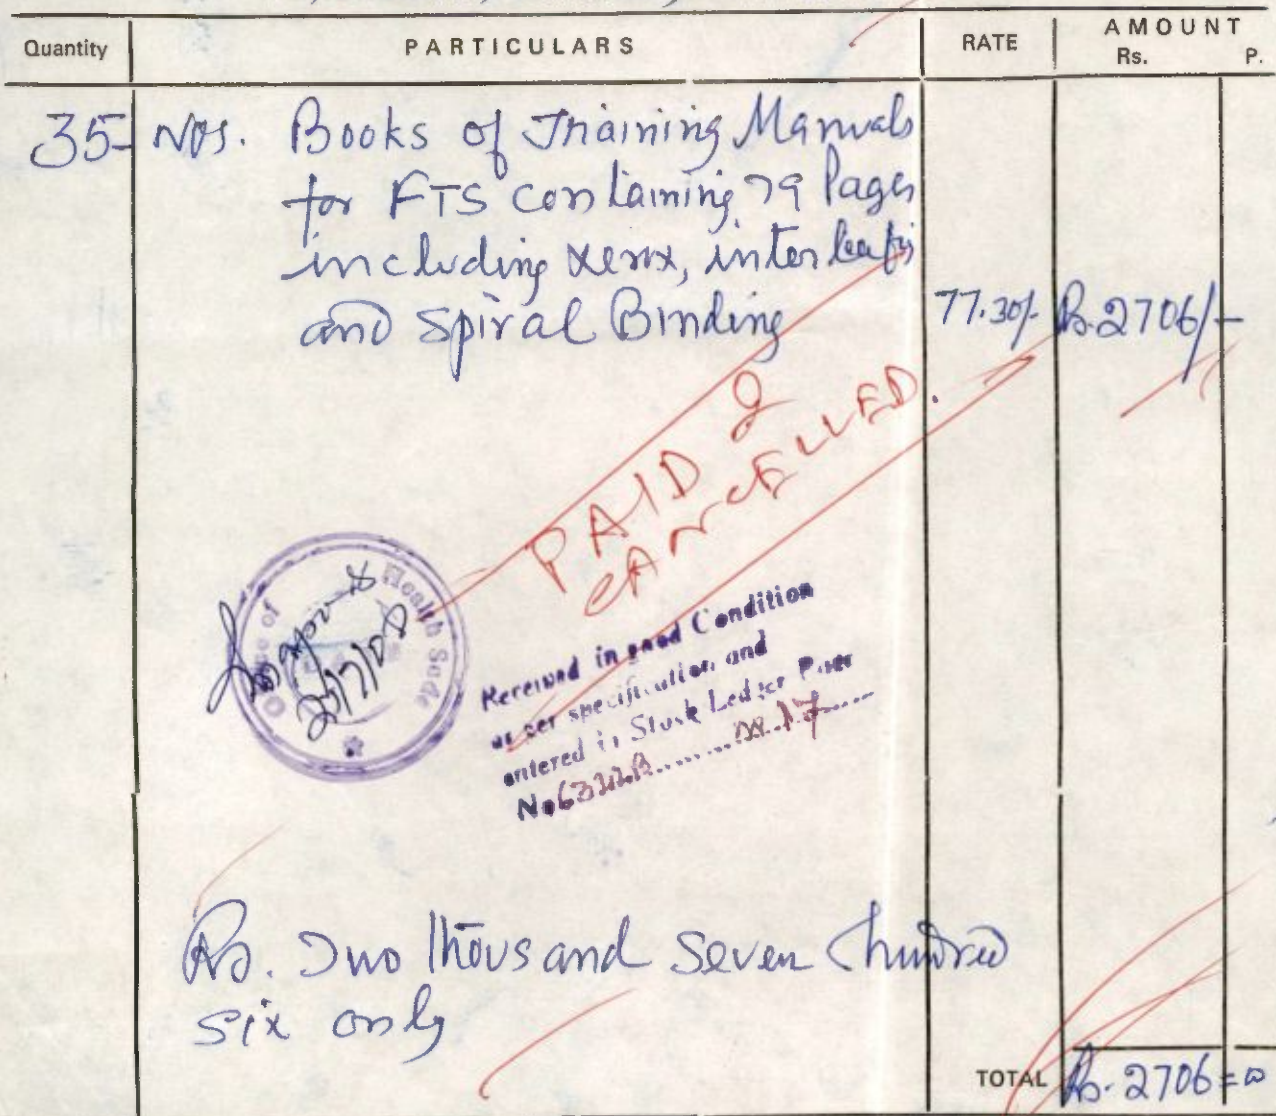 Quantity PARTICULARS RATE AMOUNT
Rs. P.
35 Nos. Books of Training Manuals
for FTS containing 79 Pages
including xerox, inter leafs
and Spiral Binding 77.30/- Rs. 2706/-
PAID &
CANCELLED
Office of Health
Received in good Condition
as per specification and
entered in Stock Ledger Page
No
Rs. Two thousand seven hundred
six only
TOTAL Rs. 2706=00